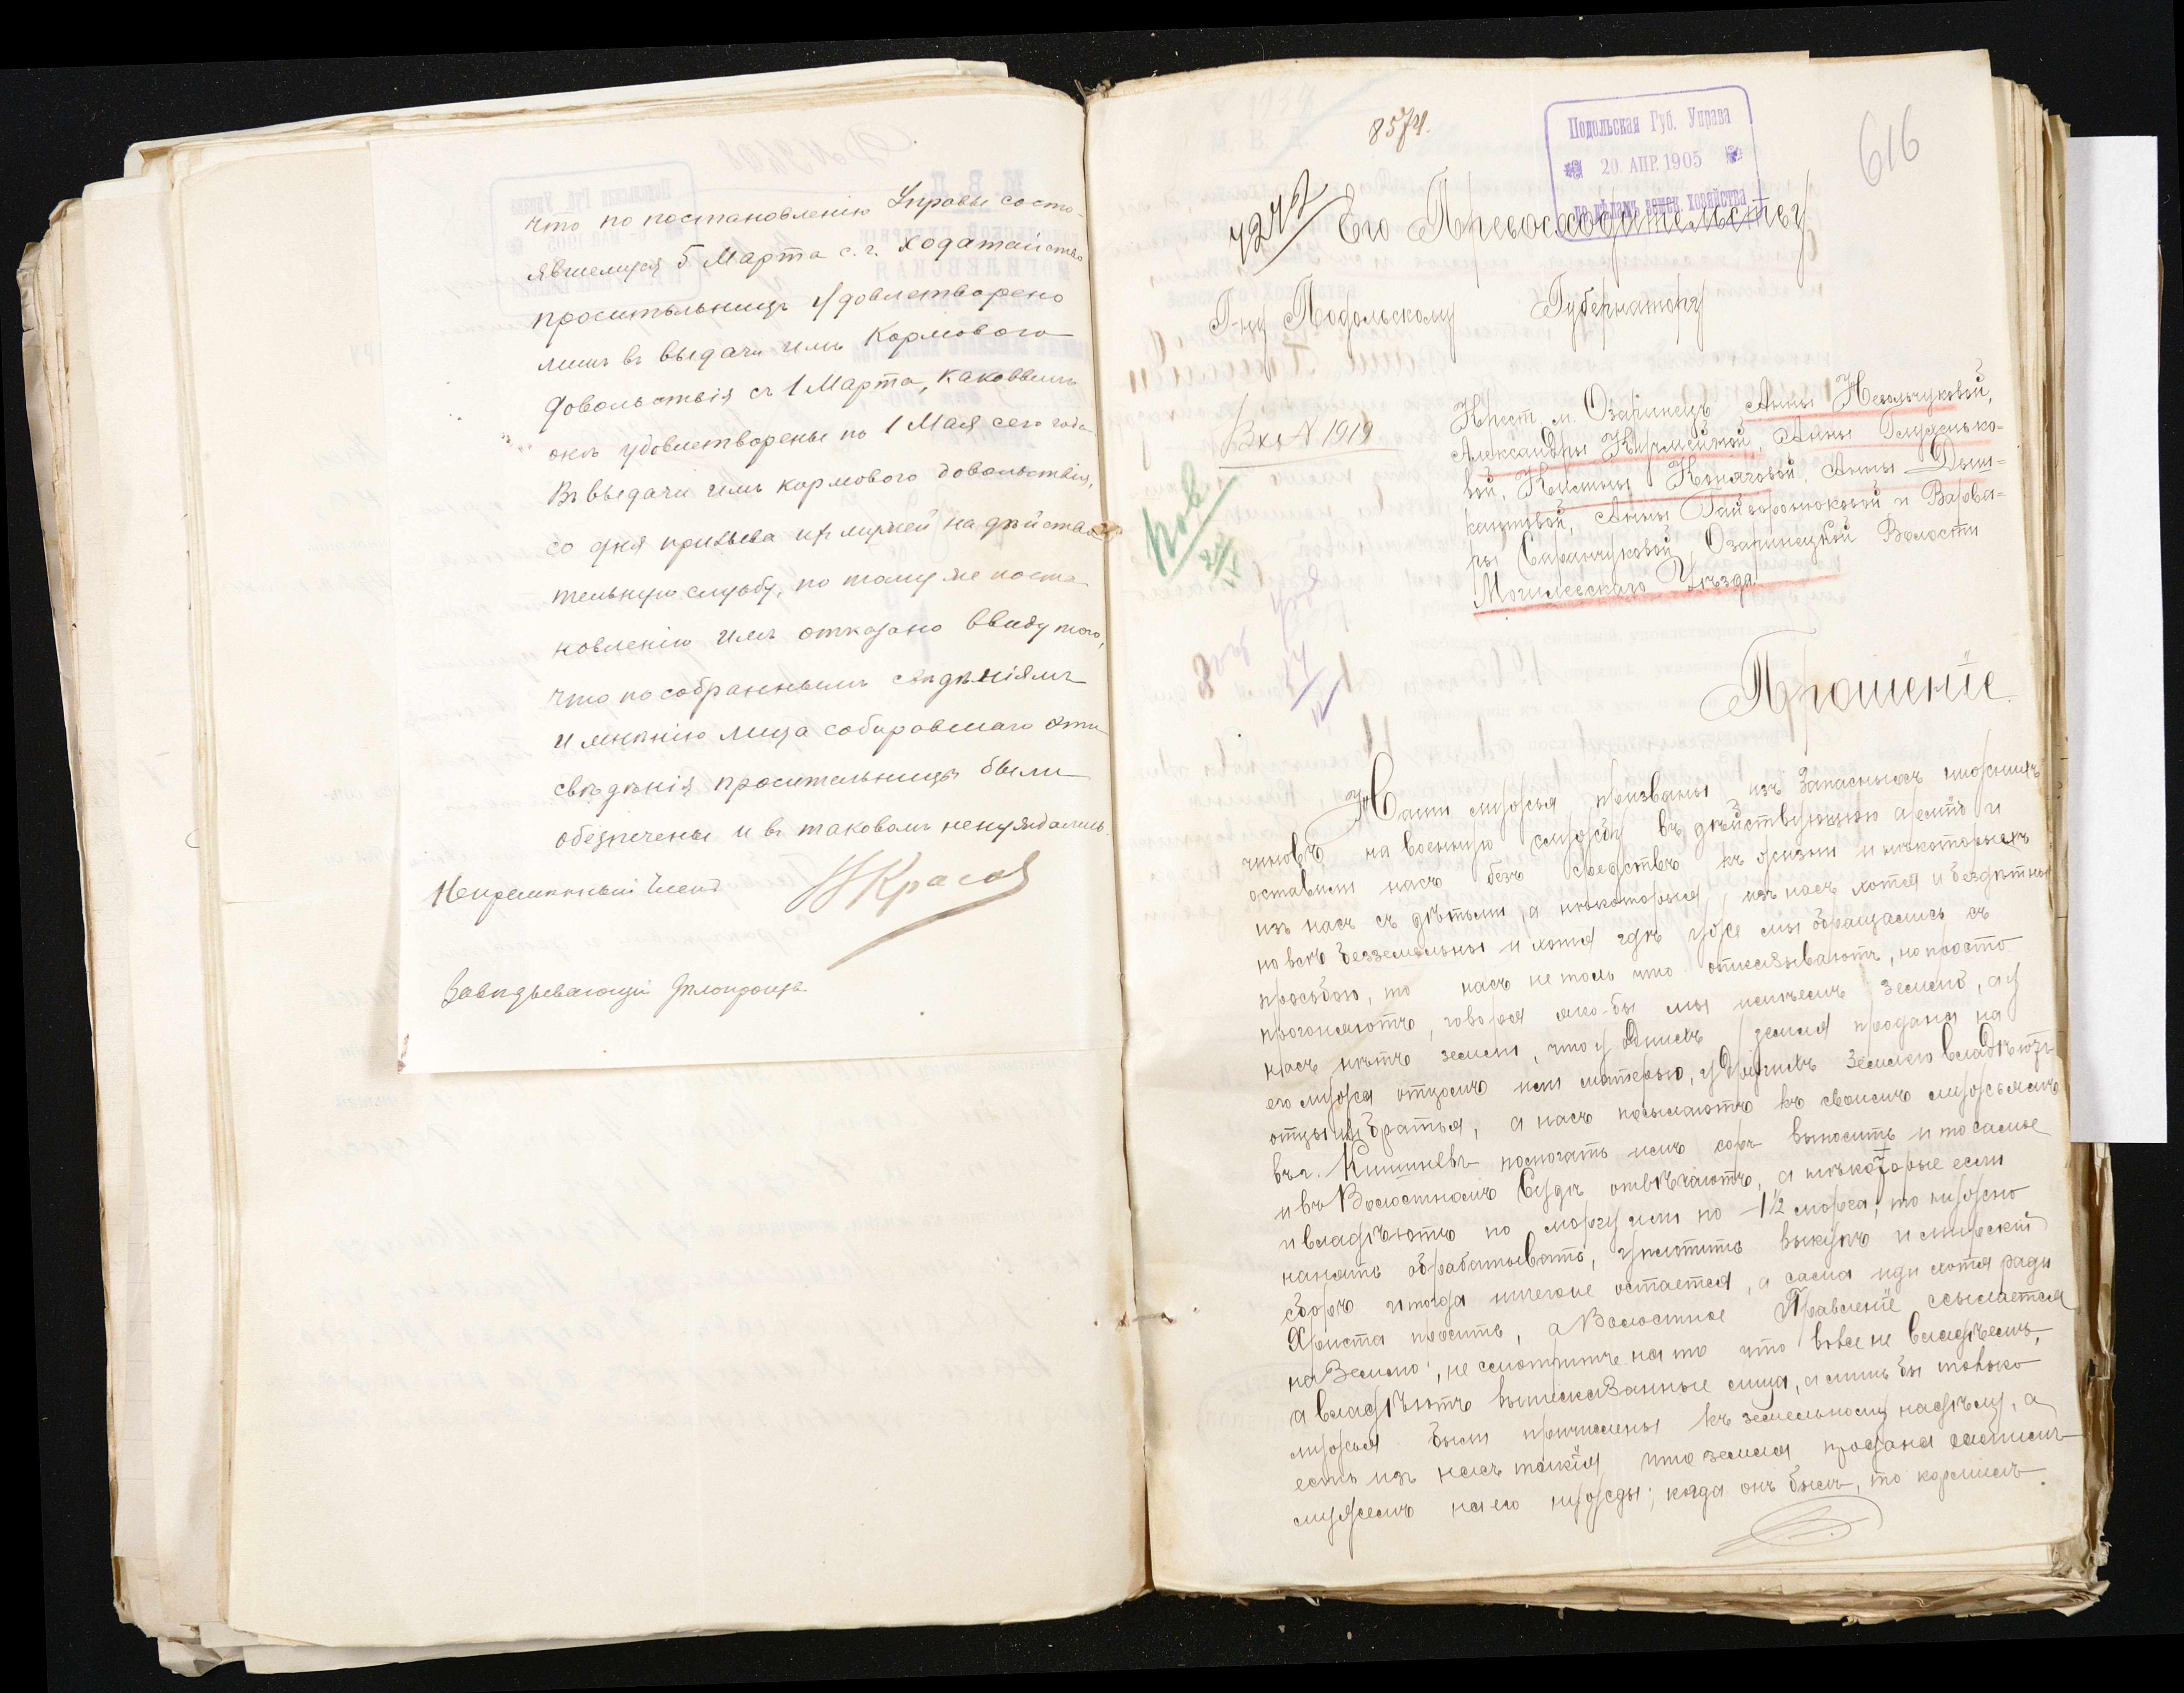 что по постановленію Управы состо-
явшемуся 5 Марта с. г. ходатайство
просительницъ удовлетворено
лишь въ выдачи имъ Кормового
довольствія съ 1 Марта, каковымъ
онѣ удовлетворены по 1 Мая сего года.
Въ выдачи имъ кормового довольствія,
со дня призыва ихъ мужей на дѣйстви-
тельную службу, по тому же поста-
новленію имъ отказано ввиду того,
что по собраннымъ свѣдѣніямъ
и мнѣнію лица собиравшаго эти
свѣдѣнія просительницы были
обезпечены и въ таковомъ не нуждались.
Непремѣнный Членъ
Завѣдывающій
8574.
Подольская Губ. Управа
20 АПР. 1905
по дѣламъ земск. хозяйства
616
Его Превосходительству
Г-ну Подольскому Губернатору
Вх. N 1919
Крест. м. Озаринецъ Анны
Александры Анны
вой, Анны
Анны Гайворонюковой и Варва-
ры Саранчуковой, Озаринецкой Волости
Могилевскаго Уѣзда
Прошеніе.
Наши мужья призваны изъ запасныхъ нижнихъ
чиновъ на военную службу въ дѣйствующую армію и
оставили насъ безъ средствъ къ жизни и нѣкоторыхъ
изъ насъ съ дѣтьми, а нѣкоторыя изъ насъ хотя и бездѣтны
но всѣ безземельны и хотя гдѣ уже мы обращались съ
просьбою, то насъ не толь что отказываютъ, но просто
прогоняютъ, говоря яко-бы мы имѣемъ землю, а у
насъ нѣтъ земли, что у однихъ земля продана на
его мужа отцомъ или матерью, у другихъ землею владѣютъ
отцы и братья, а насъ посылаютъ къ своимъ мужьямъ
въ г. Кишиневъ помогать имъ соръ выносить и то самое
и въ Волостномъ Судѣ отвѣчаютъ, а нѣкоторые если
и владѣютъ по моргу или по 1½ морга, то нужно
нанять обрабатывать, уплотить выкупъ и мирскій
сборъ и тогда ничего не остается, а сама иди хотя ради
Христа просить, а Волостное Правленіе ссылается
на Землю, не смотритъ на то что вовсе не владѣемъ,
а владѣютъ вышесказанные лица, а лишь бы только
мужья были причислены къ земельному надѣлу, а
есть изъ насъ такія что земля продана самимъ
мужемъ на его нужды; когда онъ былъ, то кормилъ.